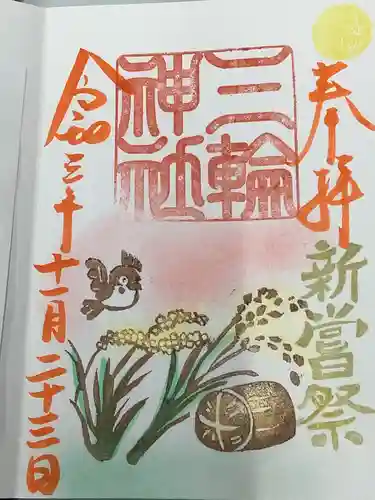 奉拝
三輪
神社
新嘗祭
令和三年
十一月二十三日
米